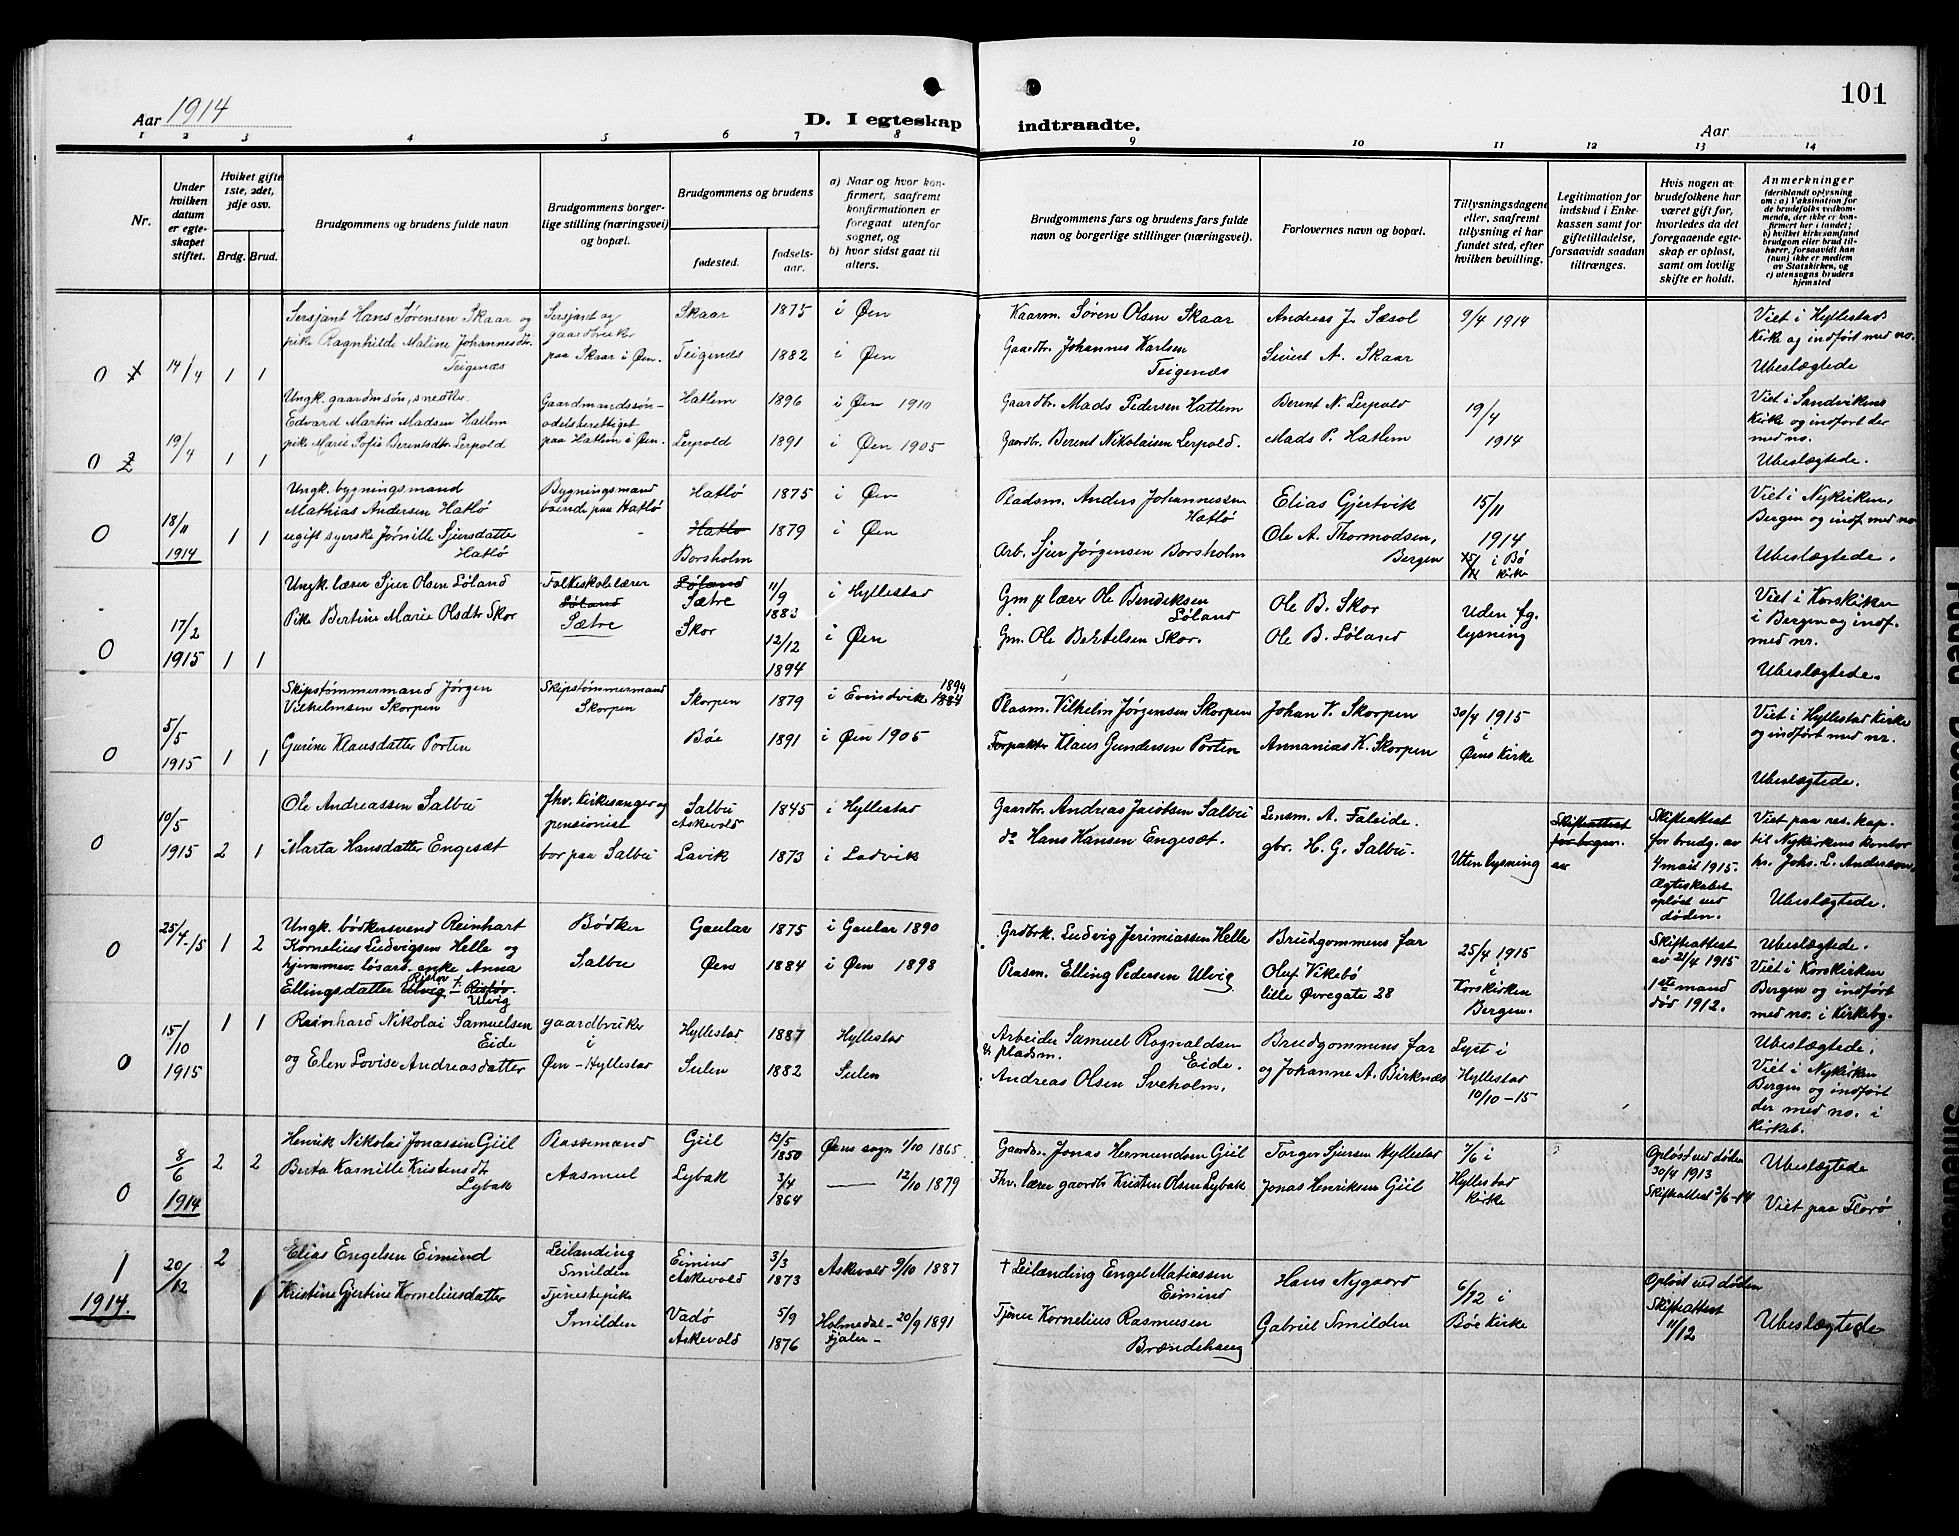 Aar 1914
D. I egteskap indtraadte.
Aar
101
1 2 3 4 5 6 7 8 9 10 11 12 13 14
Nr.
Under hvilken datum er egteskapet stiftet.
Hviket gifte 1ste, 2det, 3dje osv.
Brdg. Brud.
Brudgommens og brudens fulde navn
Brudgommens borgerlige stilling (næringsvei) og bopæl.
Brudgommens og brudens
fødested.
fødselsaar.
a) Naar og hvor konfirmert, saafremt konfirmationen er foregaat utenfor sognet, og
b) hvor sidst gaat til alters.
Brudgommens fars og brudens fars fulde navn og borgerlige stillinger (næringsvei).
Forlovernes navn og bopæl.
Tillysningsdagene eller, saafremt tillysning ei har fundet sted, efter hvilken bevilling.
Legitimation for indskud i Enkekassen samt for giftetilladelse, forsaavidt saadan tiltrænges.
Hvis nogen av brudefolkene har været gift før, hvorledes da det foregaaende egteskap er opløst, samt om lovlig skifte er holdt.
Anmerkninger
(deriblandt oplysning om: a) Vaksination for de brudefolks vedkommende, der ikke er konfirmert her i landet; b) hvilket kirkesamfund brudgom eller brud tilhører, forsaavidt han (hun) ikke er medlem av Statskirken, og c) utensogns bruders hjemsted
0 1 14/4 1 1
Sersjant Hans Sørensen Skaar og
pike Ragnhilde Maline Johannesdtr.
Teigenæs
Sersjant og
gaardbruker
paa Skaar i Øen.
Skaar 1875 i Øen
Teigenæs 1882 i Øen
Kaarm. Søren Olsen Skaar
Gaardbr. Johannes Karlsen
Teigenæs
Andreas J. Sæsol
Sivert A. Skaar
9/4 1914
Viet i Hyllestad
Kirke og indført med no.
Ubeslægtede
0 2 19/4 1 1
Ungk. gaardmsøn, snedker
Edvard Martin Madsen Hatlem
pike Marie Sofie Berentsdtr. Lerpold
Gaardmandssøn
odelsberettiget
paa Hatlem i Øen.
Hatlem 1896 i Øen 1910
Lerpold 1891 i Øen 1905
Gaardbr. Mads Pedersen Hatlem
Gaardbr. Berent Nikolaisen Lerpold.
Berent N. Lerpold
Mads P. Hatlem
19/4
1914
Viet i Sandvikens
Kirke og indført der
med no.
Ubeslægtede.
0 18/11 1914 1 1
Ungk. bygningsmand
Mathias Andersen Hatlø
ugift syerske Jørnille Sjursdatter
Hatlø
Bygningsmand
boende paa Hatlø
Hatlø 1875 i Øen
Hatlø 1879 i Øen
Borsholm
Pladsm. Anders Johannessen
Hatlø
Arb. Sjur Jørgensen Borsholm
Elias Gjertvik
Ole A. Thormodsen,
Bergen
15/11
1914
15/11 i Bø
Kirke
Viet i Nykirken,
Bergen og indf. med no
Ubeslægtede.
0 17/2 1915 1 1
Ungk. lærer Sjur Olsen Løland
Pike Bertine Marie Olsdtr Skor
Folkeskolelærer
Løland
Sætre
Løland
Sætre 11/9 1883 i Hyllestad
Skor 12/12 1894 i Øen
Gm & lærer Ole Bendiksen
Løland
Gm. Ole Bertelsen Skor.
Ole B. Skor
Ole B. Løland
Uden fg.
lysning
Viet i Korskirken
i Bergen og indf.
med nr.
Ubeslægtede.
0 5/5 1915 1 1
Skipstømmermand Jørgen
Vilhelmsen Skorpen
Gurine Klausdatter Porten
Skipstømmermand
Skorpen
Skorpen 1879 i Evindvik 1884 1894
Bøe 1891 i Øen 1905
Plasm. Vilhelm Jørgensen Skorpen
Forpakter Klaus Gundersen Porten
Johan V. Skorpen
Annanias K. Skorpen
30/4 1915
i
Øens Kirke
Viet i Hyllestad Kirke
og indført med nr.
Ubeslægtede.
0 10/5 1915 2 1
Ole Andreassen Salbu
Marta Hansdatter Engesæt
fhv. Kirkesanger og
pensionist
bor paa Salbu
Salbu 1845 i Hyllestad
Askevold
Lavik 1873 i Ladvik
Gaardbr. Andreas Jacobsen Salbu
do Hans Hansen Engesæt.
Lensm. A. Faleide.
gbr. H. G. Salbu.
Uten lysning
Skifteattest
for brugm.
av
Skifteattest
for brudg. av
4 mai 1915.
Ægteskabet
opløst ved
døden.
Viet paa res. kap.
til Nykirkens kontor
hr. Johs. L. Andersen.
Ubeslægtede.
0 25/4-15 1 2
Ungk. bødkersvend Reinhart
Kornelius Ludvigsen Helle og
hjemmev. løsarb. enke Anna
Ellingsdatter Ulvig Ristøv f: Ristøv.
Ulvig
Bødker
Salbu
Gaular 1875 i Gaular 1890
Øen 1884 i Øen 1898
Grdbrk. Ludvig Jerimiassen Helle
Plasm. Elling Pedersen Ulvig
Brudgommens far
Oluf Vikebø
lille Øvregate 28
25/4 1915
i
Korskirken
Bergen.
Skifteattest
av 21/4 1915
1ste mand
død 1912.
Ubeslægtede.
Viet i Korskirken
Bergen og indført
med no. i Kirkebg.
0 15/10 1915 1 1
Reinhard Nikolai Samuelsen
Eide
og Elen Lovise Andreasdatter
gaardbruker
i
Øen-Hyllestad
Hyllestad 1887 Hyllestad
Sulen 1882 Sulen
Arbeider Samuel Ragnvaldsen
& pladsm. Eide.
Andreas Olsen Sveholm.
Brudgommens far
og Johanne A. Birknæs
Lyst i
Hyllestad
10/10-15
Ubeslægtede.
Viet i Nykirken
Bergen og indført
der med no. i
kirkeb.
0 8/6 1914 2 2
Henrik Nikolai Jonassen Giil
Berta Karnille Kristensdtr
Lybak
Plassemand
Aasmul
Giil 13/5 1850 Øens sogn 1/10 1865
Lybak 3/4 1864 — 12/10 1879
Gaardbr. Jonas Hermundsen Giil
Fhv. lærer gaardbr Kristen Olsen Lybak
Torger Sjursen Hyllestad
Jonas Henriksen Giil
7/6 i
Hyllestad
Kirke
Opløst ved døden
30/4 1913
Skifteattest 3/6-14
Ubeslægtede
Viet paa Florø
1 1914. 20/12 2 1
Elias Engelsen Eimind
Kristine Gjertine Korneliusdatter
Leilænding
Smilden
Tjenestepike
Smilden
Eimind 3/3 1873 Askevold 9/10 1887
Askevold
Vadø 5/9 1876 Holmedal- 20/9 1891
Askevold Fjaler-
† Leilænding Engel Matiassen
Eimind
Tjener Kornelius Rasmusen
Brændehaug
Hans Nygaard
Gabriel Smilden
6/12 i
Bøe Kirke
Opløst ved døden
Skifteattest
11/12
Ubeslægtede